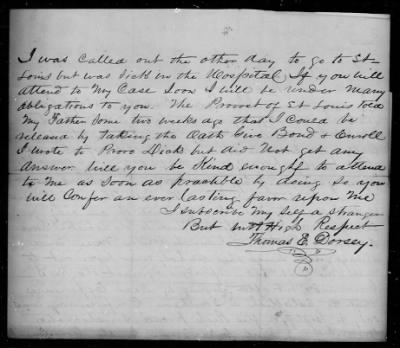 I was called out the other day to go to St
Louis but was Sick in the Hospital If you will
attend to My Case Soon I will be under Many
obligations to you. The Provost of St Louis told
My Father Some two weeks ago that I could be
released by taking the Oath Give Bond & Enroll
I wrote to Provo Dick but did Not get any
answer will you be Kind enought to attend
to Me as Soon as practible by doing so you
will Confer an ever lasting favor upon Me
I subscribe my Self a Stranger
But with High Respect
Thomas E. Dorsey.